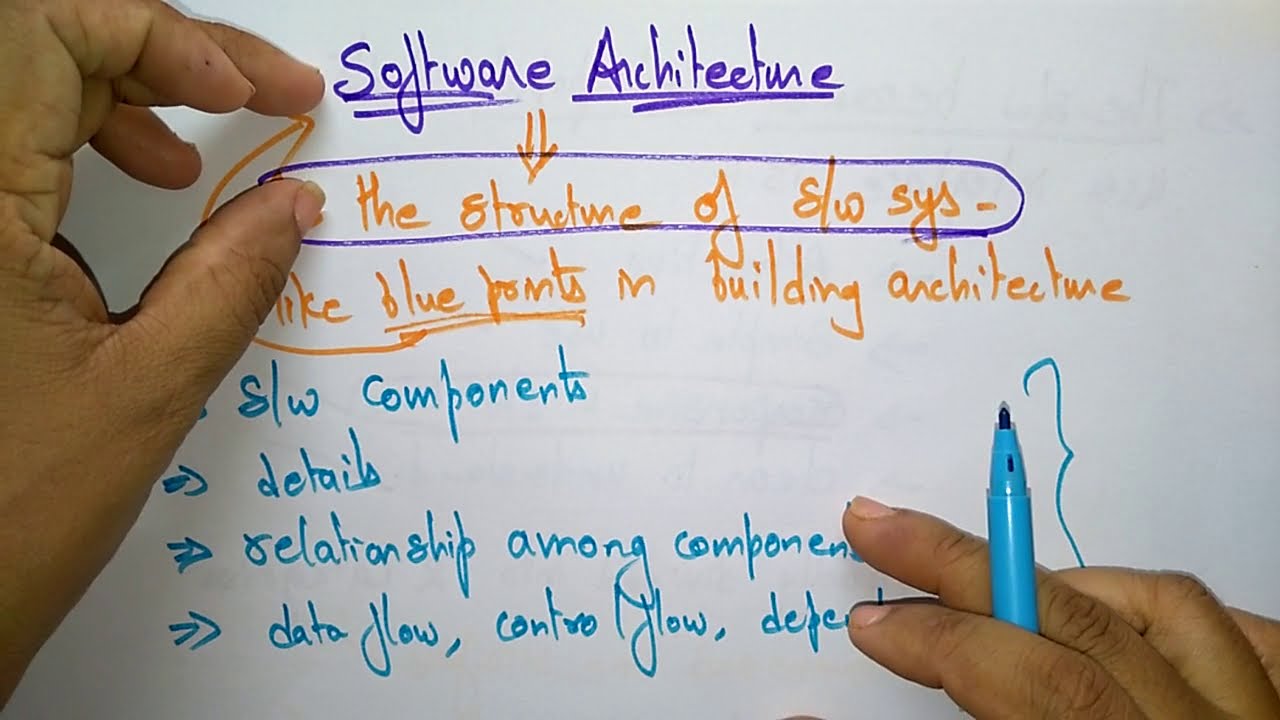 Software Architecture
the structure of s/w sys -
like blue points in building architecture
s/w components
⇒ details
⇒ relationship among component
⇒ data flow, control flow,